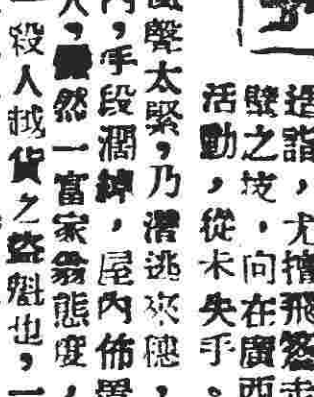 造詣，尤擅飛簷走
壁之技，向在廣西
活動，從未失手。
聲太緊，乃潛逃來穗，
內，手段濶綽，屋內佈置
人，儼然一富家翁態度，
殺人越貨之盜魁也，一